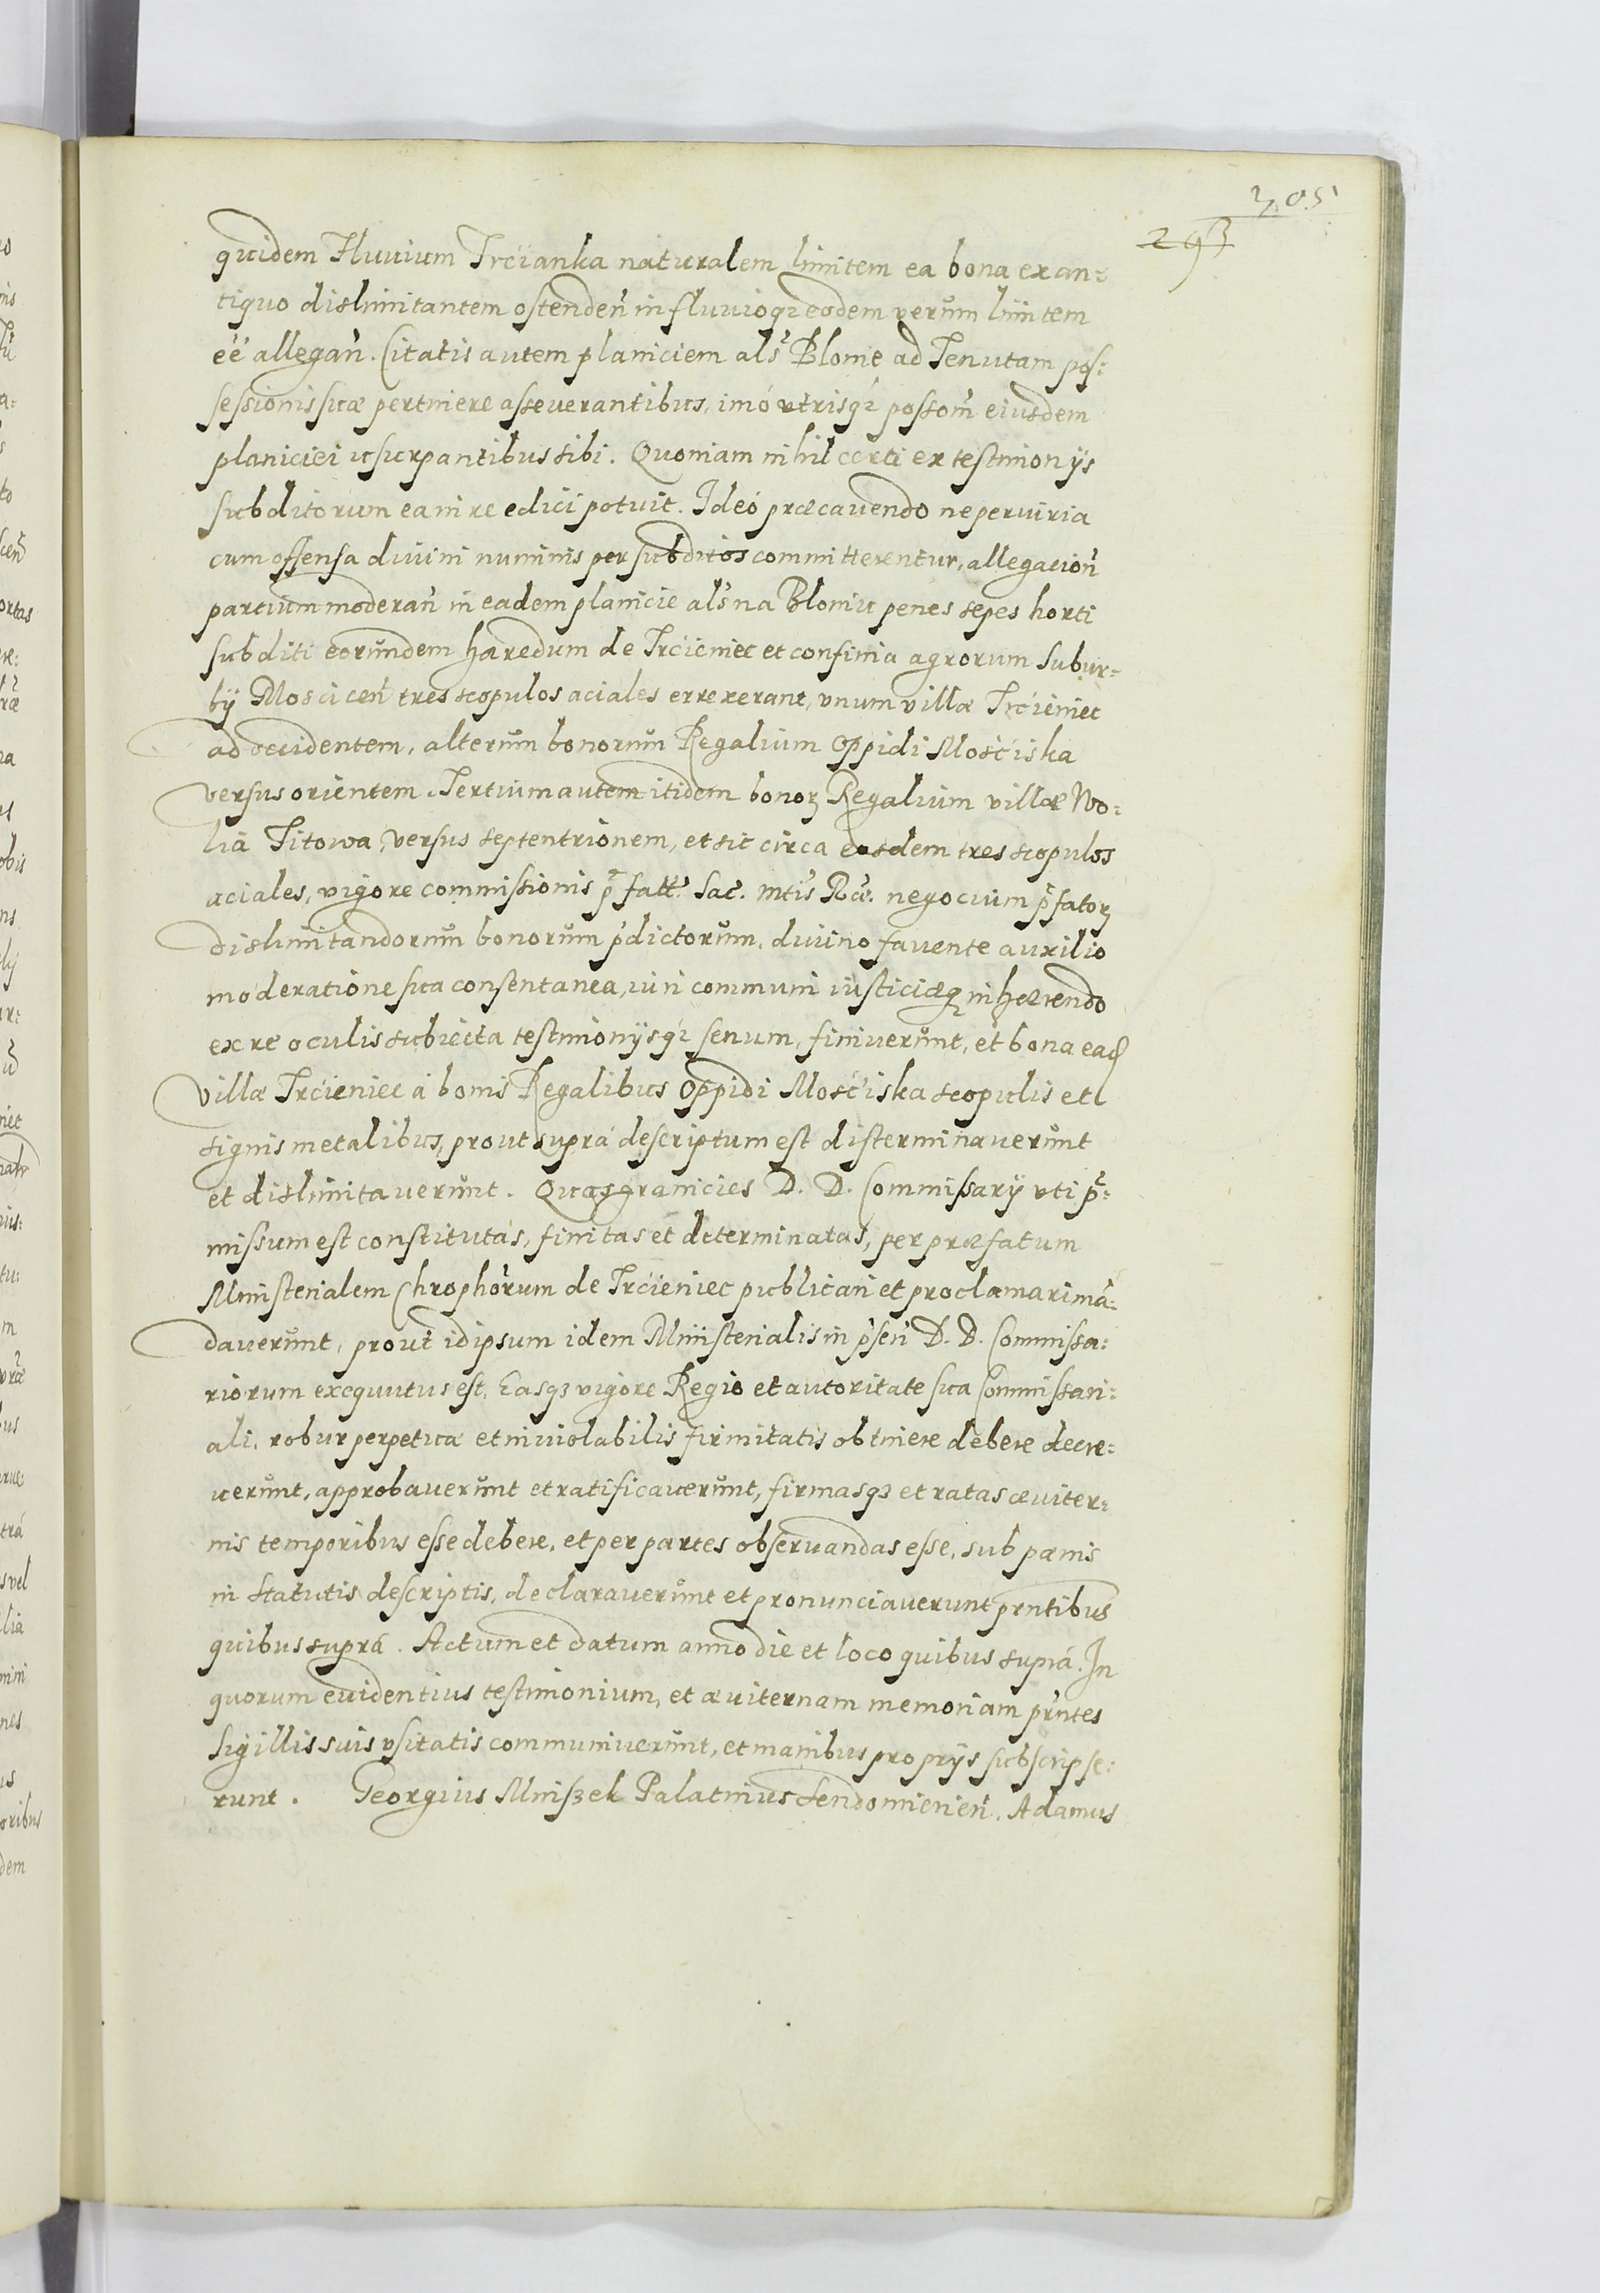 305
293
quidem Fluvium Trcianka naturalem limitem ea bona ex an=
tiquo dislimitantem ostendeñ in fluvioq3 eodem verum limitem
eē allegañ. Citatis autem planiciem als Blonie ad Tenutam pos=
sessionis suæ pertinere asseverantibus, imó utrisq3 possoñ eiusdem
planiciei usurpantibus sibi. Quoniam nihil certi ex testimonijs
subditorum ea in re edici potuit. Ideó præcavendo ne periuria
cum offensa divini numinis per subditos committerentur, allegacioñ
partium moderañ in eadem planicie als na Bloniu penes sepes horti
subditi eorundem hæredum de Trcieniec et confinia agrorum Subur=
bij Mosciceñ tres scopulos aciales errexerant, unum villæ Trcieniec
ad occidentem, alterum bonorum Regalium Oppidi Mosciska
versus orientem. Tertium autem itidem bonor Regalium villæ Wo=
lia Titowa versus septentrionem, et sic circa eosdem tres scopulos
aciales, vigore commissionis p̃fatæ Sac. Mtis Ræ. negocium p̃fator
dislimitandorum bonorum p̃dictorum, divino favente auxilio
moderatione sua consentanea, iuri communi iusticiæq3 inhærendo
ex re oculis subiecta testimonijsq3 senum, finiverunt, et bona ead
villæ Trcieniec á bonis Regalibus Oppidi Mosciska scopulis et
signis metalibus, prout suprá descriptum est disterminaverunt
et dislimitaverunt. Quas granicies D. D. Commissarij uti p̃=
missum est constitutas, finitas et determinatas, per præfatum
Ministerialem Chrophorum de Trcieniec publicari et proclamari mã=
daverunt, prout idipsum idem Ministerialis in p̃señ D. D. Commissa=
riorum exequutus est. Easq3 vigore Regio et autoritate sua Commissari=
ali, robur perpetuæ et inviolabilis firmitatis obtinere debere decre=
verunt, approbaverunt et ratificaverunt, firmasq3 et ratas æviter=
nis temporibus esse debere, et per partes observandas esse, sub pænis
in Statutis descriptis, declaraverunt et pronunciaverunt prntibus
quibus suprá. Actum et datum anno die et loco quibus suprá. In
quorum evidentius testimonium, et æviternam memoriam prntes
Sigillis suis usitatis communiverunt, et manibus proprijs subscripse=
runt. Georgius Mniszek Palatinus Sendomirieñ. Adamus